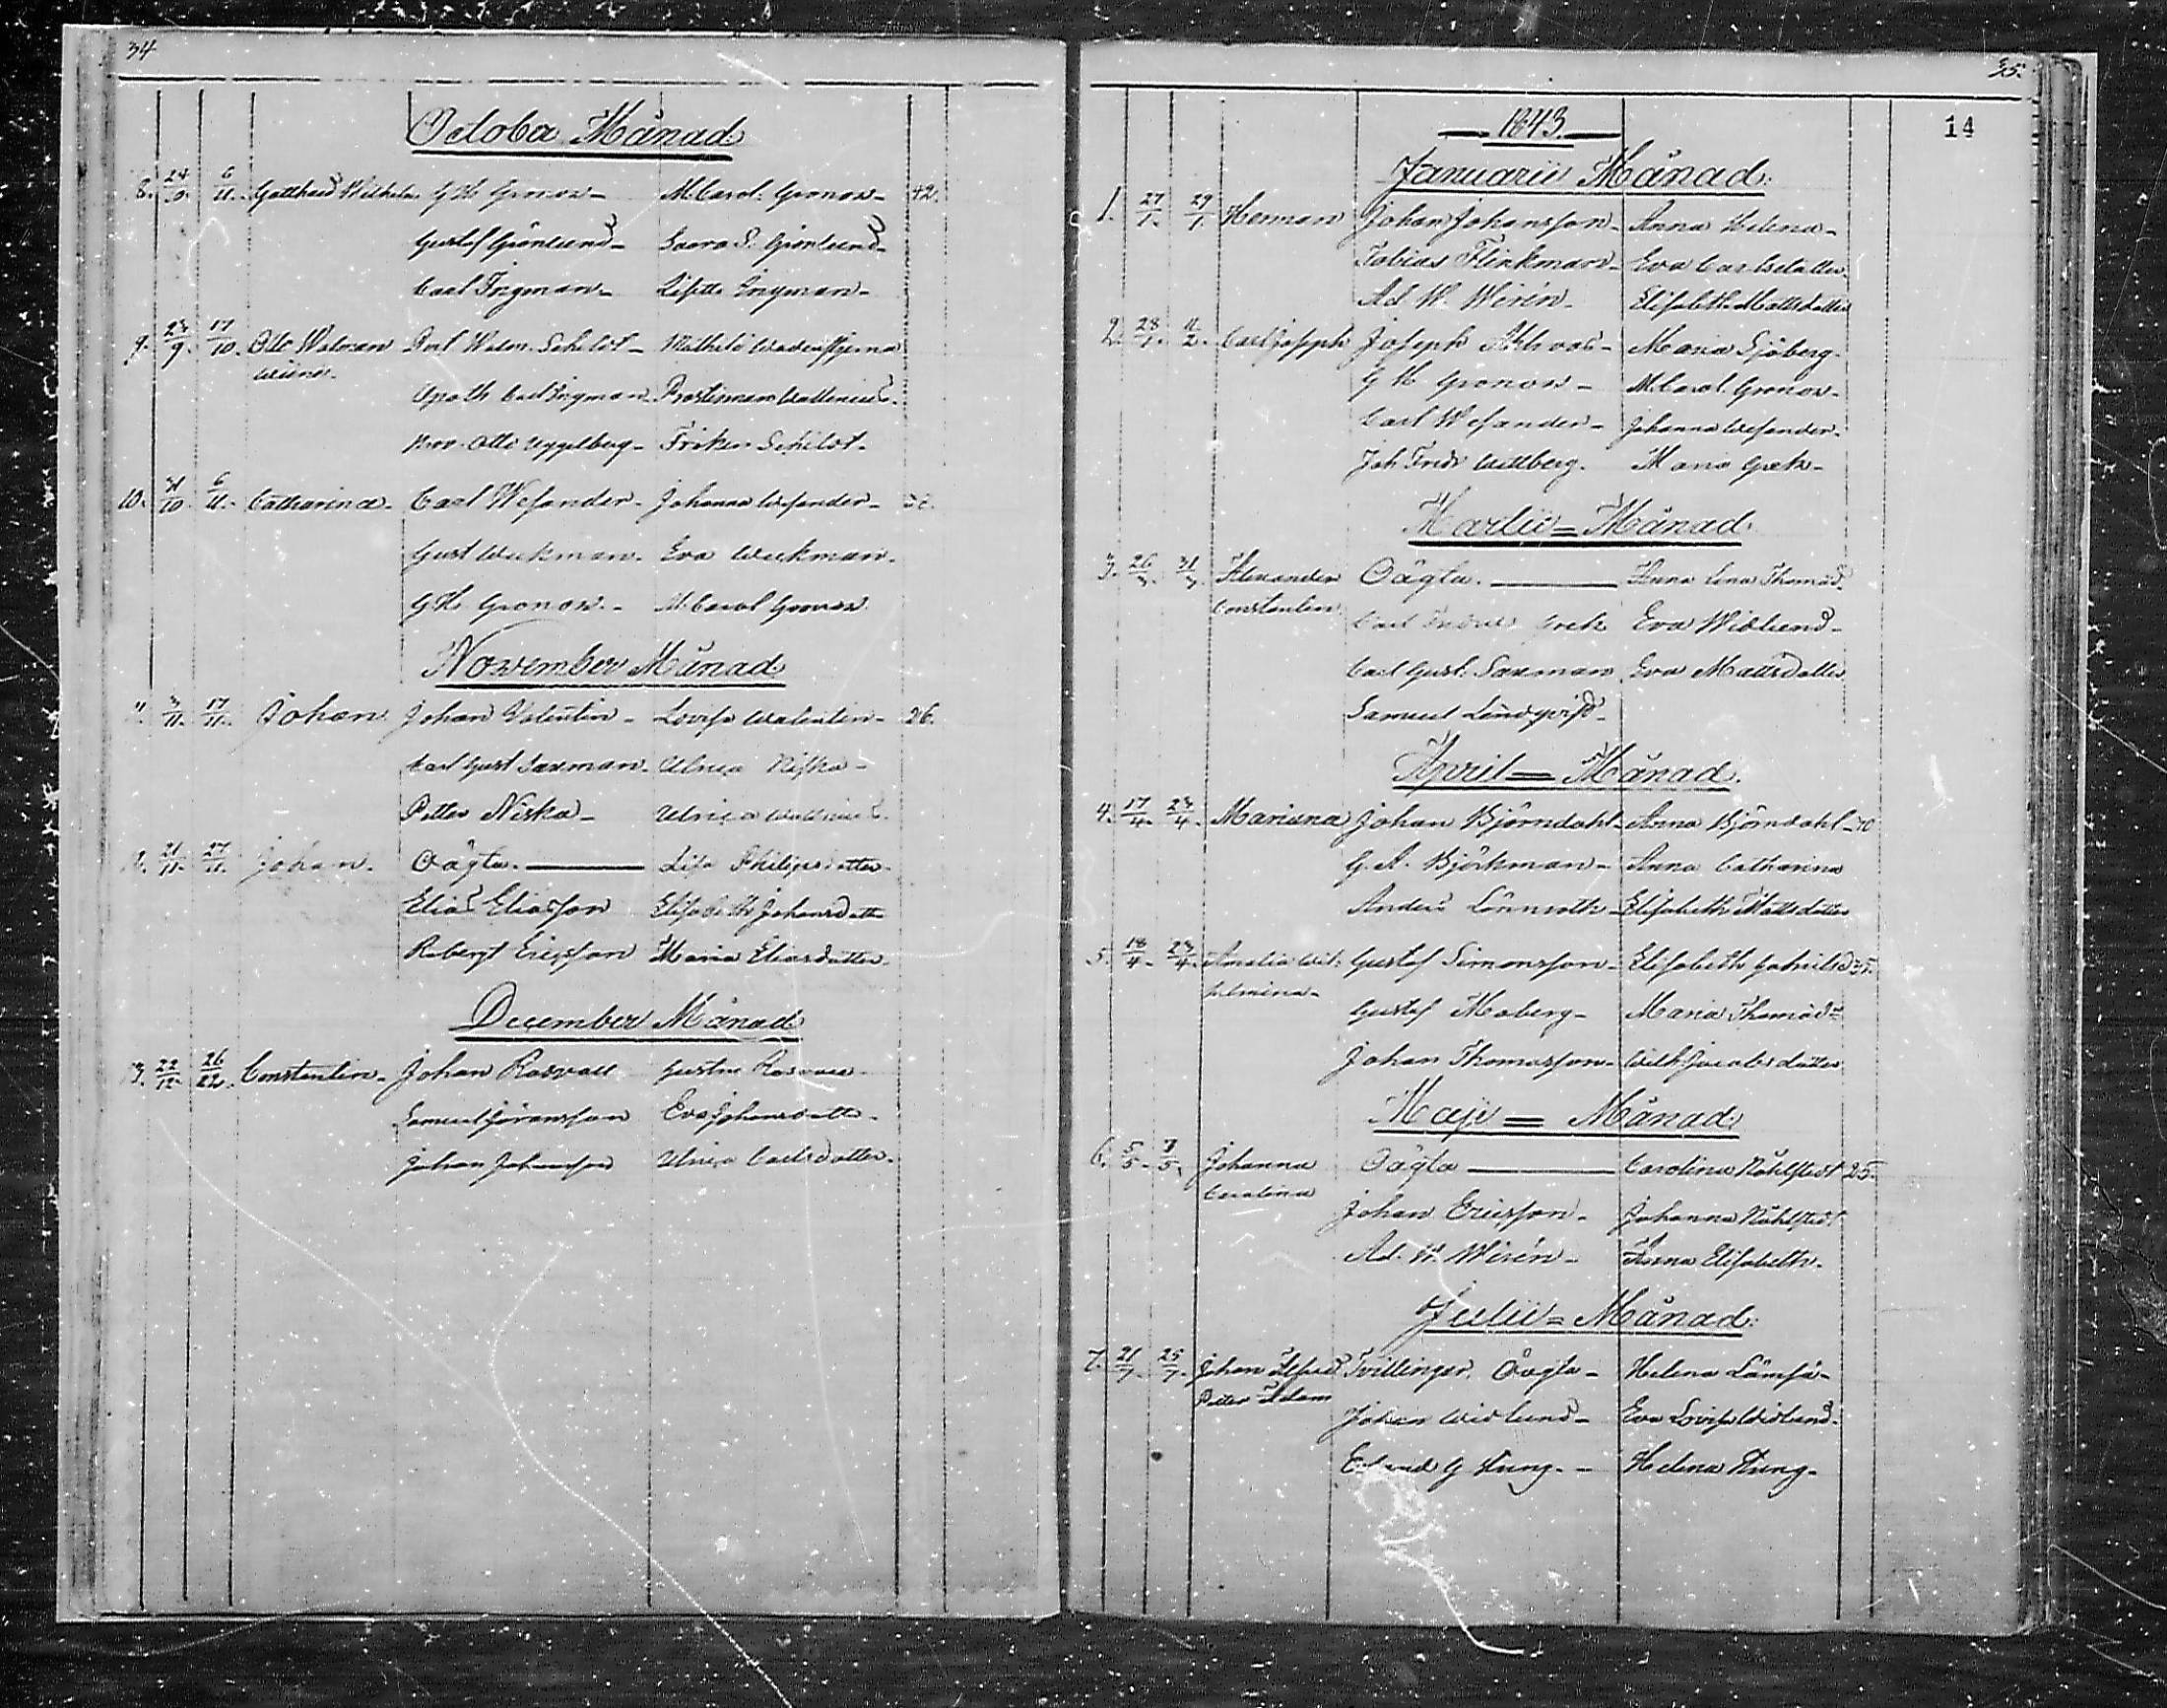 34
October Månad
8. 24/9. 6/11. Gotthard Wilhelm G H Gronow M. Carol. Gronow 42.
Gustaf Grönlund Saara S. Grönlund
Carl Ingman Lisette Ingman
9. 23/9. 17/10. Otto Walman Schildt Mathild
Carl Ingman Prostinnan Wallenius
Otto Uggelberg Fröken Schildt
10. 31/10. 6/11. Catharina Carl Wesander Johanna Wesander
Gust Wickman Eva Wickman
G H Gronow M. Carol Gronow
November Månad
11. 3/11. 17/11. Johan Johan Valentin Lovisa Walentin 26.
Carl Gust Saxman Ulrica Niska
Petter Niska Ulrica Wallenius
21/11. 27/11. Johan. Oägta. Lisa Philipsdotter
Elias Eliasson Elisabeth Johansdotter
Robergt Ericsson Maria Eliasdotter
December Månad
22/12. 26/12. Constantin Johan Rosvall Gustava Rosvall
Samuel Göransson Eva Johansdotter
Johan Johansson Ulrica Carlsdotter
35.
14
1843.
Januarii Månad
1. 27/1. 29/1. Herman Johan Johansson Anna Helena
Tobias Flinkman Eva Carlsdotter
Ad. W. Wirén Elisabeth Mattsdotter
2. 28/1. 11/2. Carl Joseph Joseph Ahlroos Maria Sjöberg
G H Gronow M. Carol Gronow
Carl Wesander Johanna Wesander
Joh Fredr Wittberg. Maria Grek
Martii = Månad
3. 26/3. 31/3. Alexander Oägta. Anna Lena Thomasd.
Constantin Carl Grek Eva Widlund
Carl Gust. Saxman Eva Mattsdotter
Samuel Lindqvist
April = Månad.
4. 17/4. 23/4. Mariana Johan Björndahl Anna Björndahl 40
G. A. Björkman Anna Catharina
Anders Lönnroth Elisabeth Mattsdotter
5. 18/4. 23/4. Amalia Wil- Gustaf Simonsson Elisabeth Gabrielsd 35.
helmina Gustaf Moberg Maria Thomasdr
Johan Thomasson Wilh Jacobsdotter
Maji = Månad
6. 5/5. 7/5. Johanna Oägta Carolina Nåhlstedt 25.
Carolina Johan Ericsson Johanna Nåhlstedt
Ad. W. Wirén Anna Elisabeth
Julii = Månad
7. 21/7. 25/7. Johan Alfred Tvillingar. Oägta Helena Lämsä
Petter Adam
Johan Widlund Eva Lovisa Widlund
G Kung Helena Kung